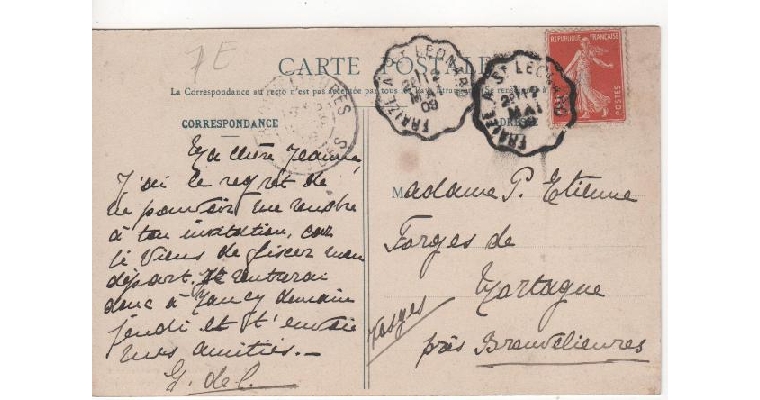 7E
CARTE POSTALE
La Correspondance au recto n'est pas acceptée par tous
CORRESPONDANCE
ADRESSE
FRAIZE A ST LEONARD
2E 12
MAI
09
FRAIZE A ST LEONARD
2E 12
MAI
09
REPUBLIQUE FRANÇAISE
POSTES
Ma chère Jeanne,
J'ai le regret de
ne pouvoir me rendre
à ton invitation, car
je viens de fixer mon
départ. Je rentrerai
donc à Nancy demain
jeudi et t'envoie
mes amitiés. -
G. de L.
Madame P. Etienne
Forges de
Mortagne
près Brouvelieures
Vosges